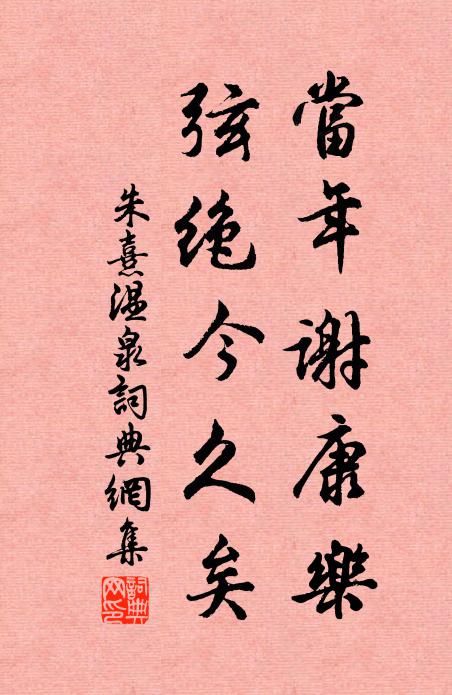 當年謝康樂
弦絶今久矣
朱熹温泉詞典網集
詞典網印